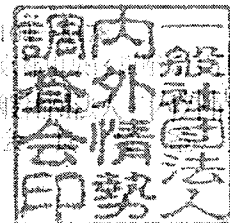 一般社団法人
内外情勢
調査会印